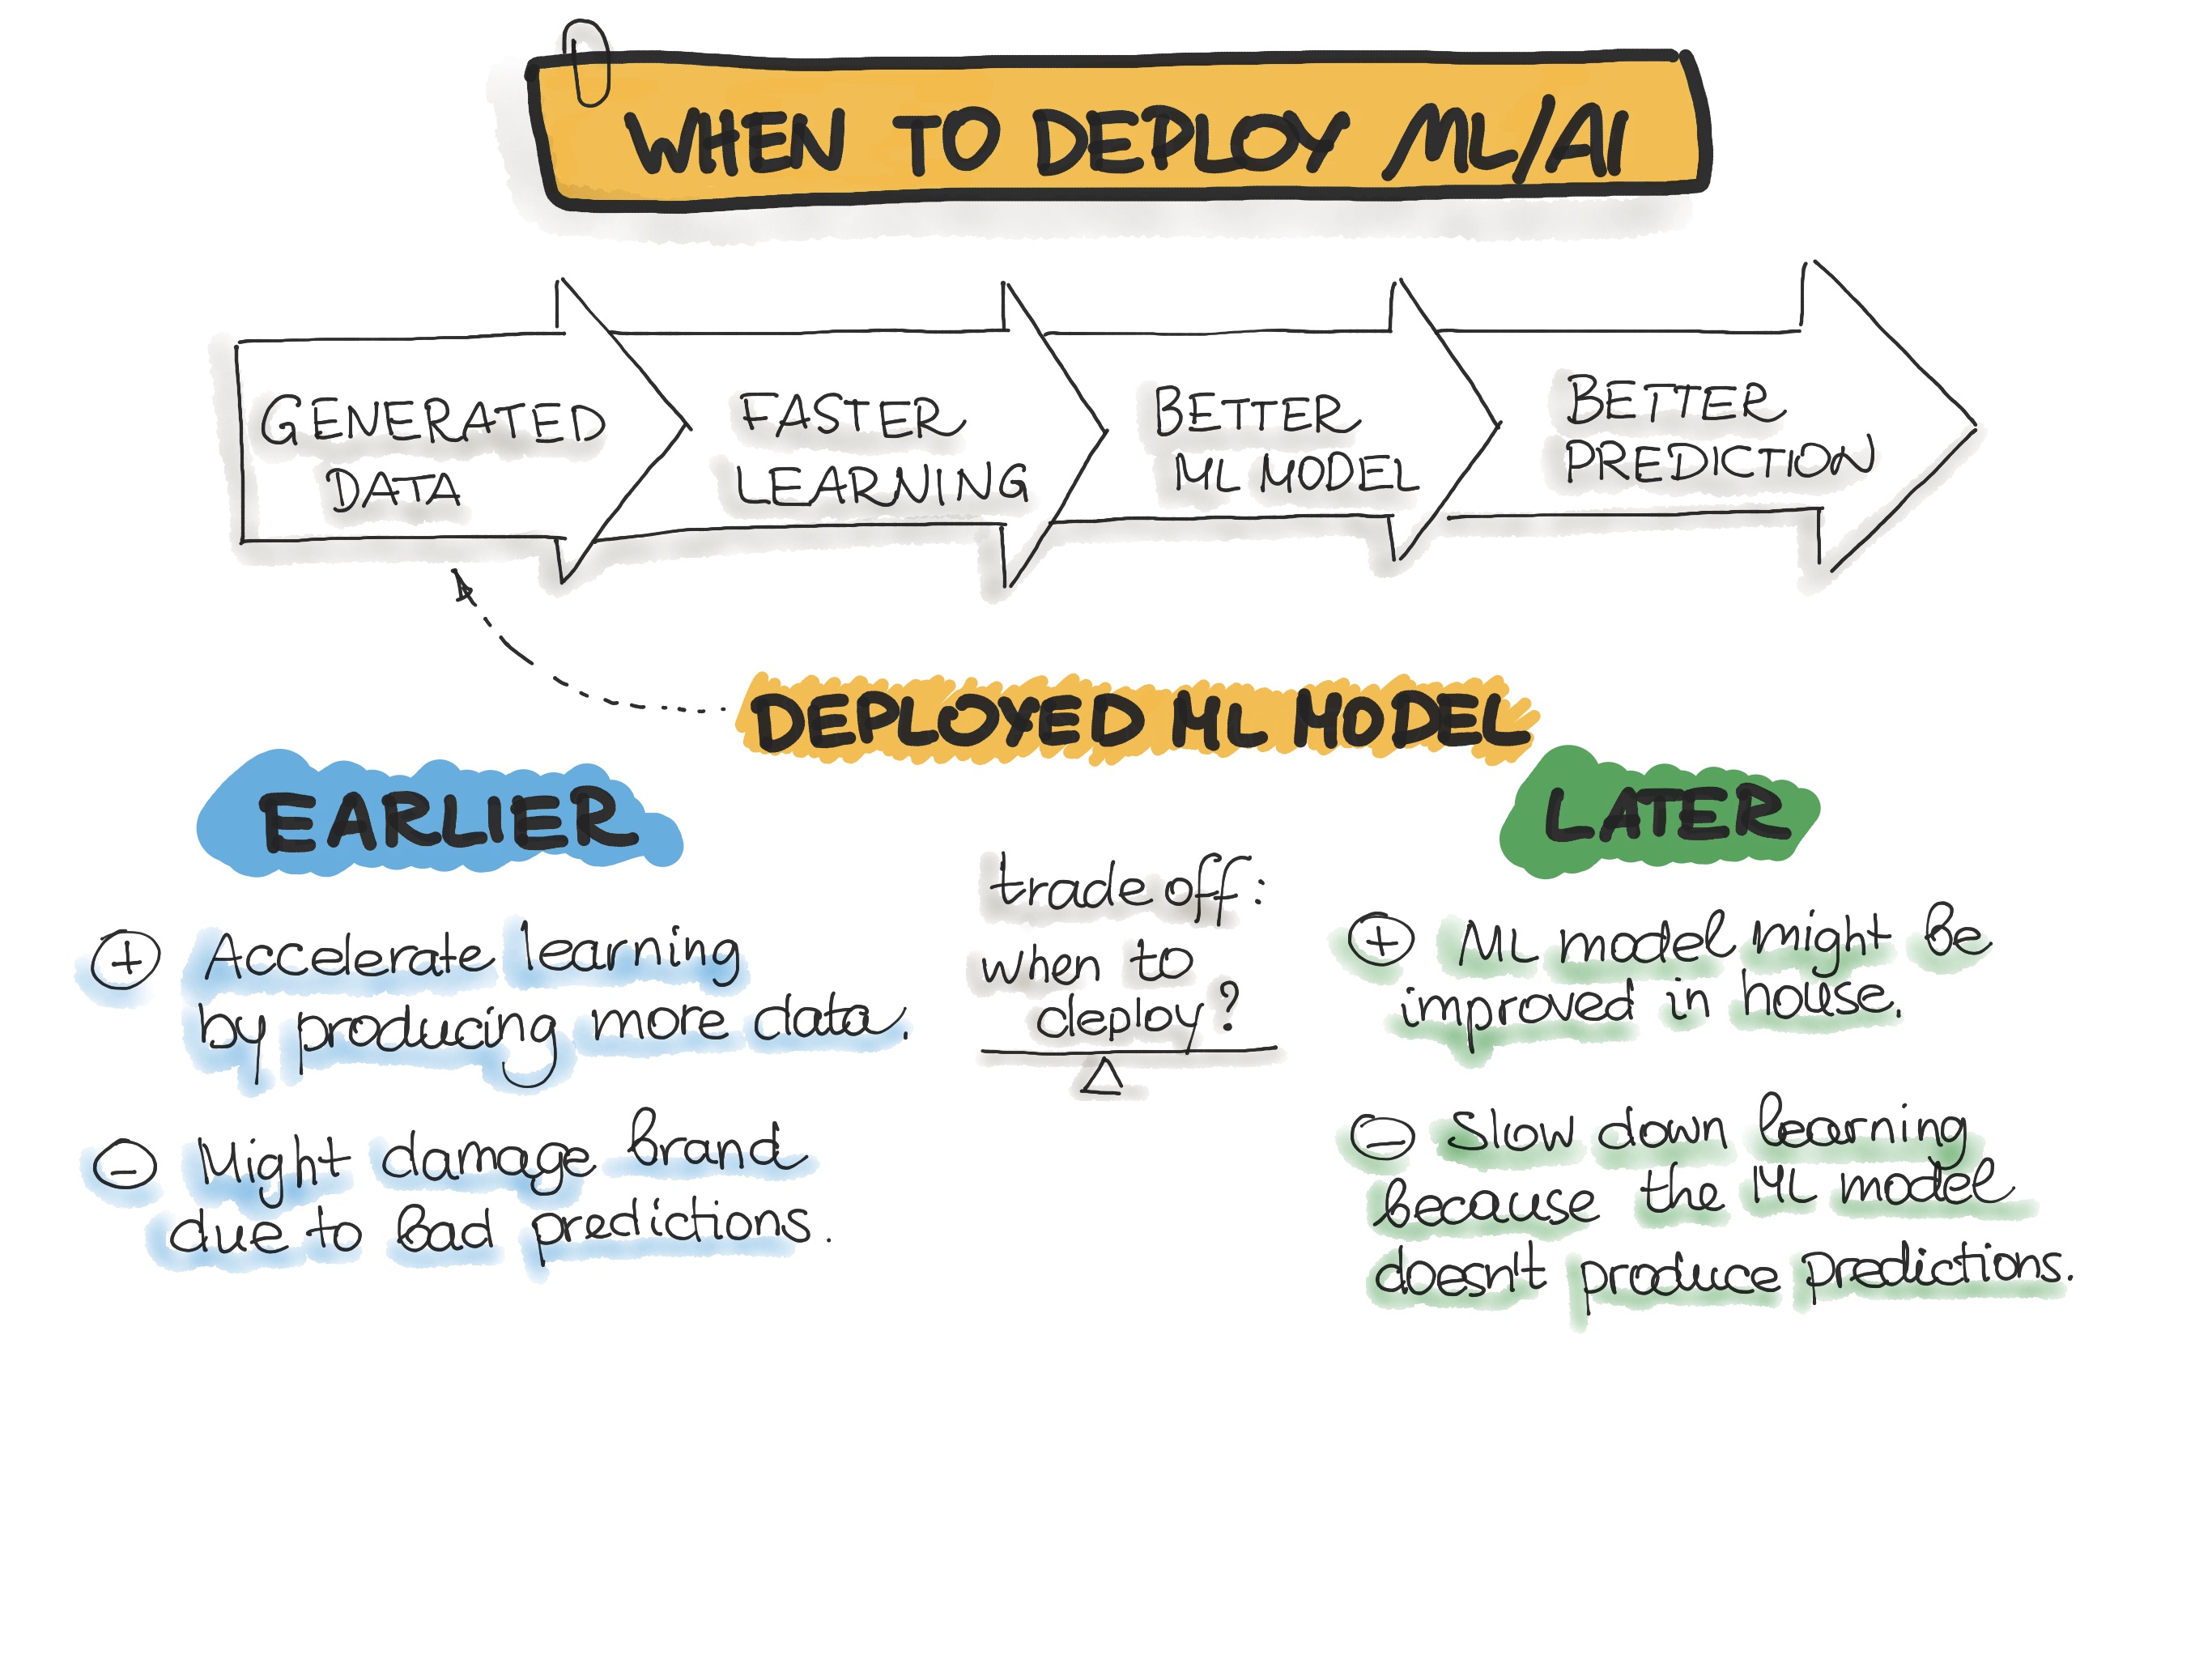 WHEN TO DEPLOY ML/AI
GENERATED
DATA
FASTER
LEARNING
BETTER
ML MODEL
BETTER
PREDICTION
DEPLOYED ML MODEL
EARLIER
+ Accelerate learning
by producing more data.
- Might damage brand
due to bad predictions.
trade off:
when to
deploy?
LATER
+ ML model might be
improved in house.
- Slow down learning
because the ML model
doesn't produce predictions.